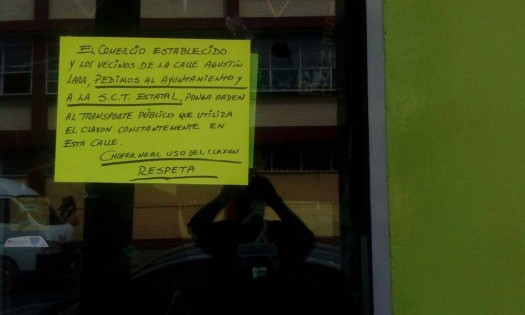 EL COMERCIO ESTABLECIDO
Y LOS VECINOS DE LA CALLE AGUSTÍN
LARA, PEDIMOS AL AYUNTAMIENTO Y
A LA S.C.T. ESTATAL, PONGA ORDEN
AL TRANSPORTE PÚBLICO QUE UTILIZA
EL CLAXON CONSTANTEMENTE EN
ESTA CALLE.
CHOFER NO AL USO DEL CLAXON
RESPETA